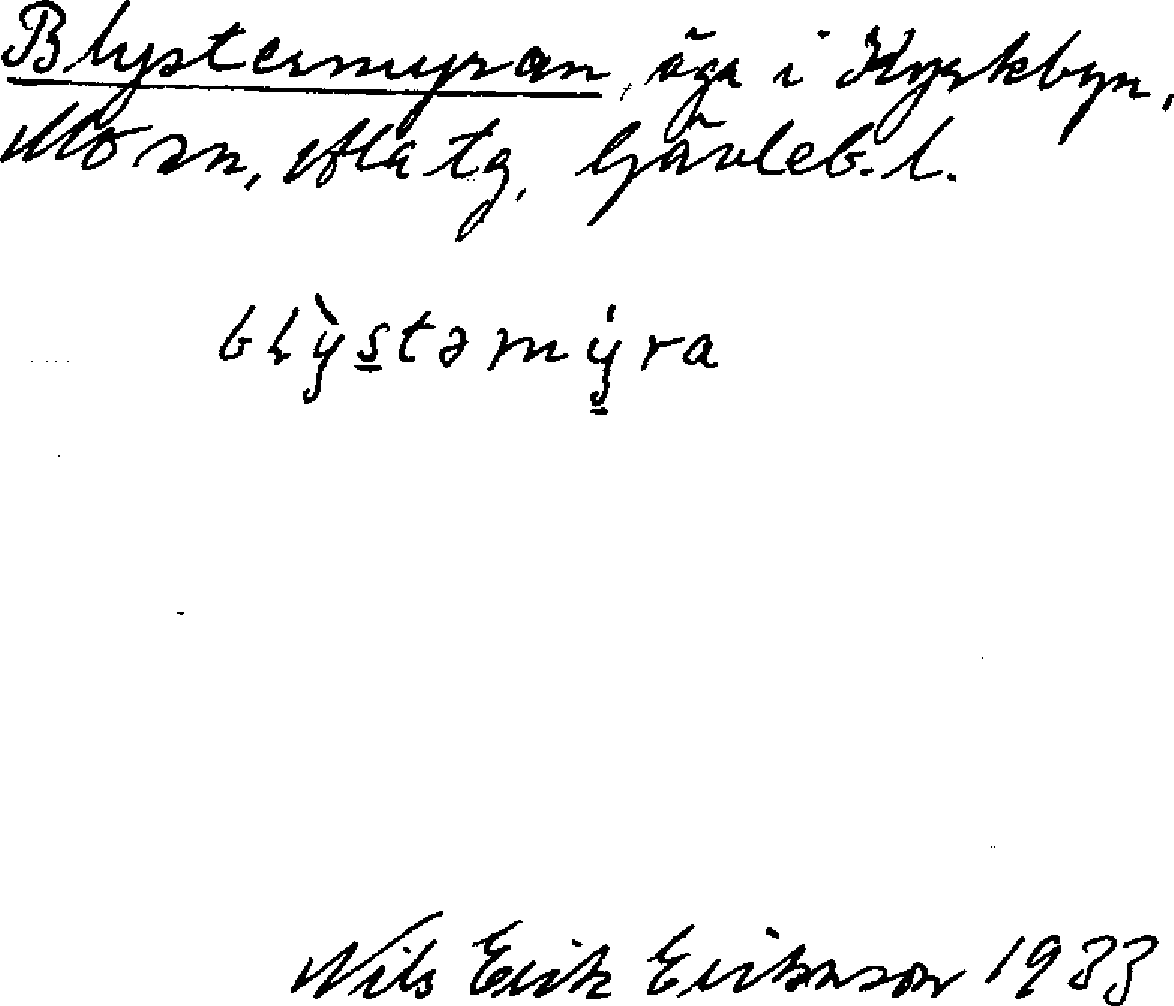 Blystermyran, äga i Kyrkbyn,
Mo sn, Ala tg, Gävleb. l.
bḷỳs̲təmý̲ra
Nils Erik Erikson 1933